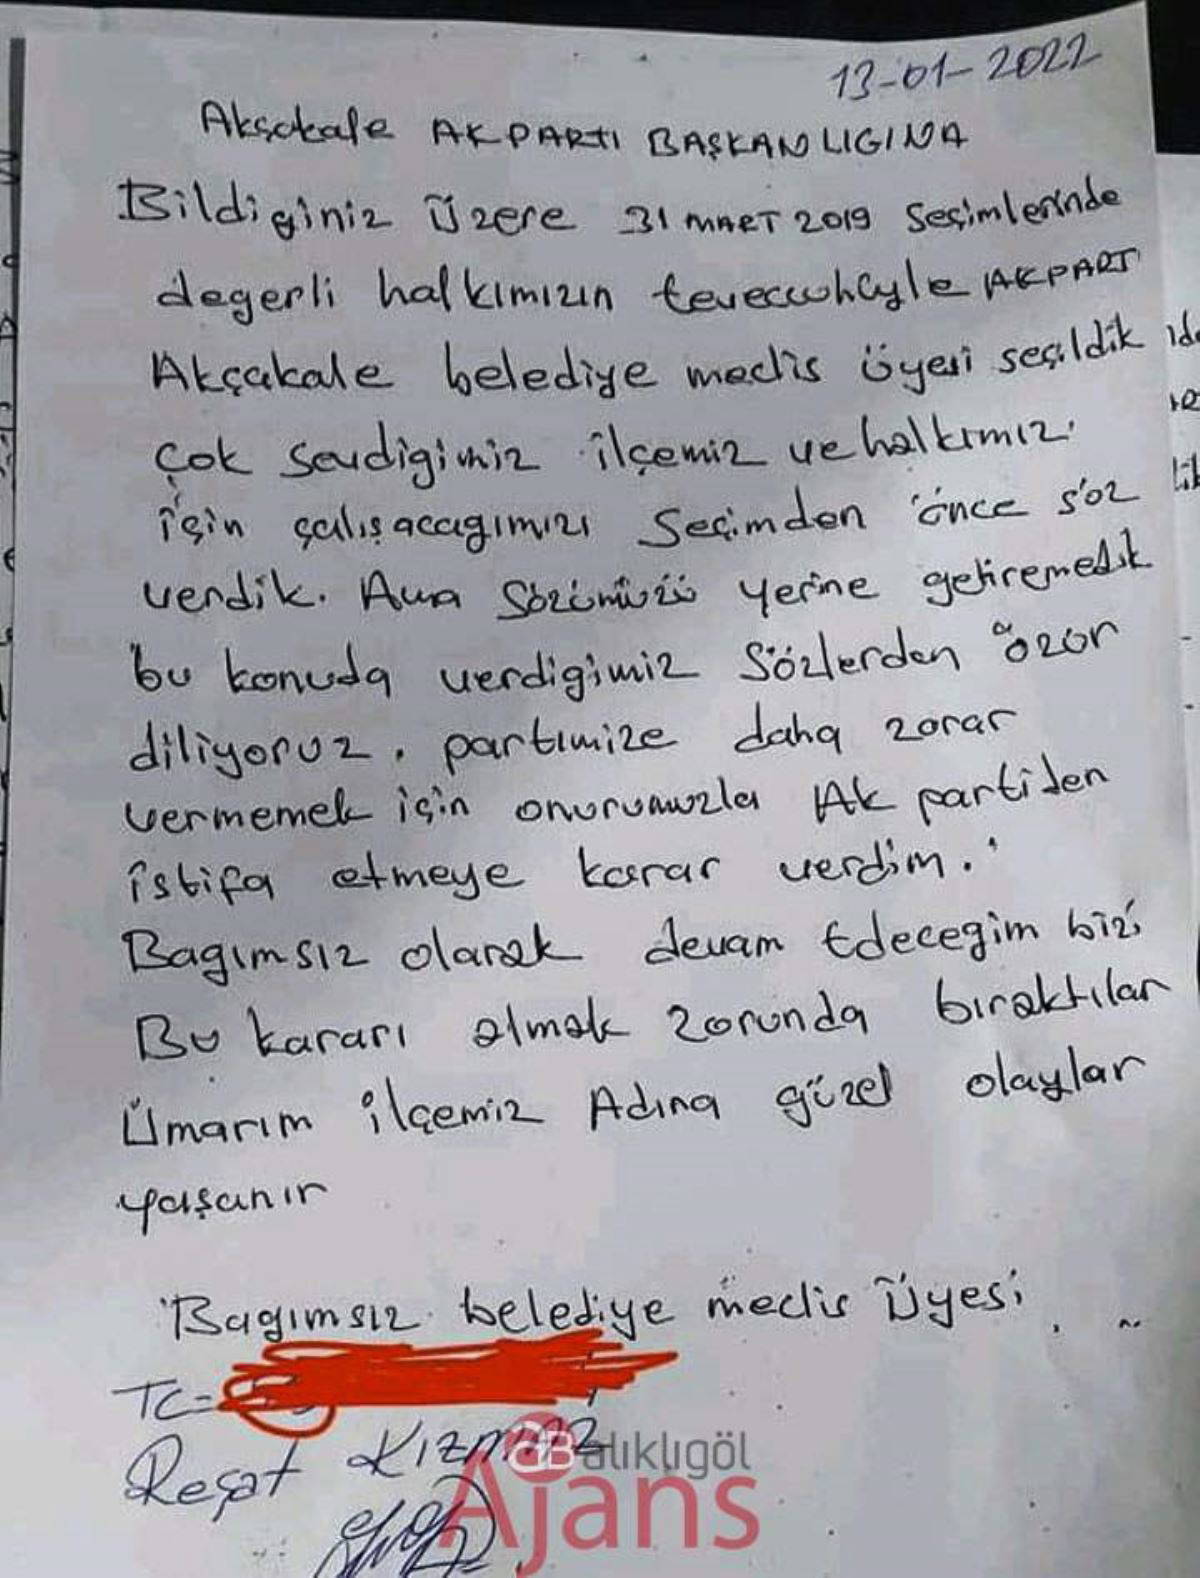 13-01-2022
Akçakale AK PARTİ BAŞKANLIGINA
Bildiginiz Üzere 31 MART 2019 Seçimlerinde
degerli halkımızın AKPARTİ
Akçakale belediye meclis üyesi seçildik
çok sevdigimiz ilçemiz ve halkımız
için çalışacagımızı Seçimden önce söz
verdik. Ama Sözümüzü yerine getiremedik
bu konuda verdigimiz Sözlerden özür
diliyoruz. partimize daha zarar
vermemek için onurumuzla Ak partiden
istifa etmeye karar verdim.
Bagımsız olarak devam Edecegim bizi
Bu kararı almak zorunda bıraktılar
Ümarım ilçemiz Adına güzel olaylar
yaşanır
Bagımsız belediye meclis Üyesi
TC=
Reşat Kızmaz
Balıklıgöl
Ajans